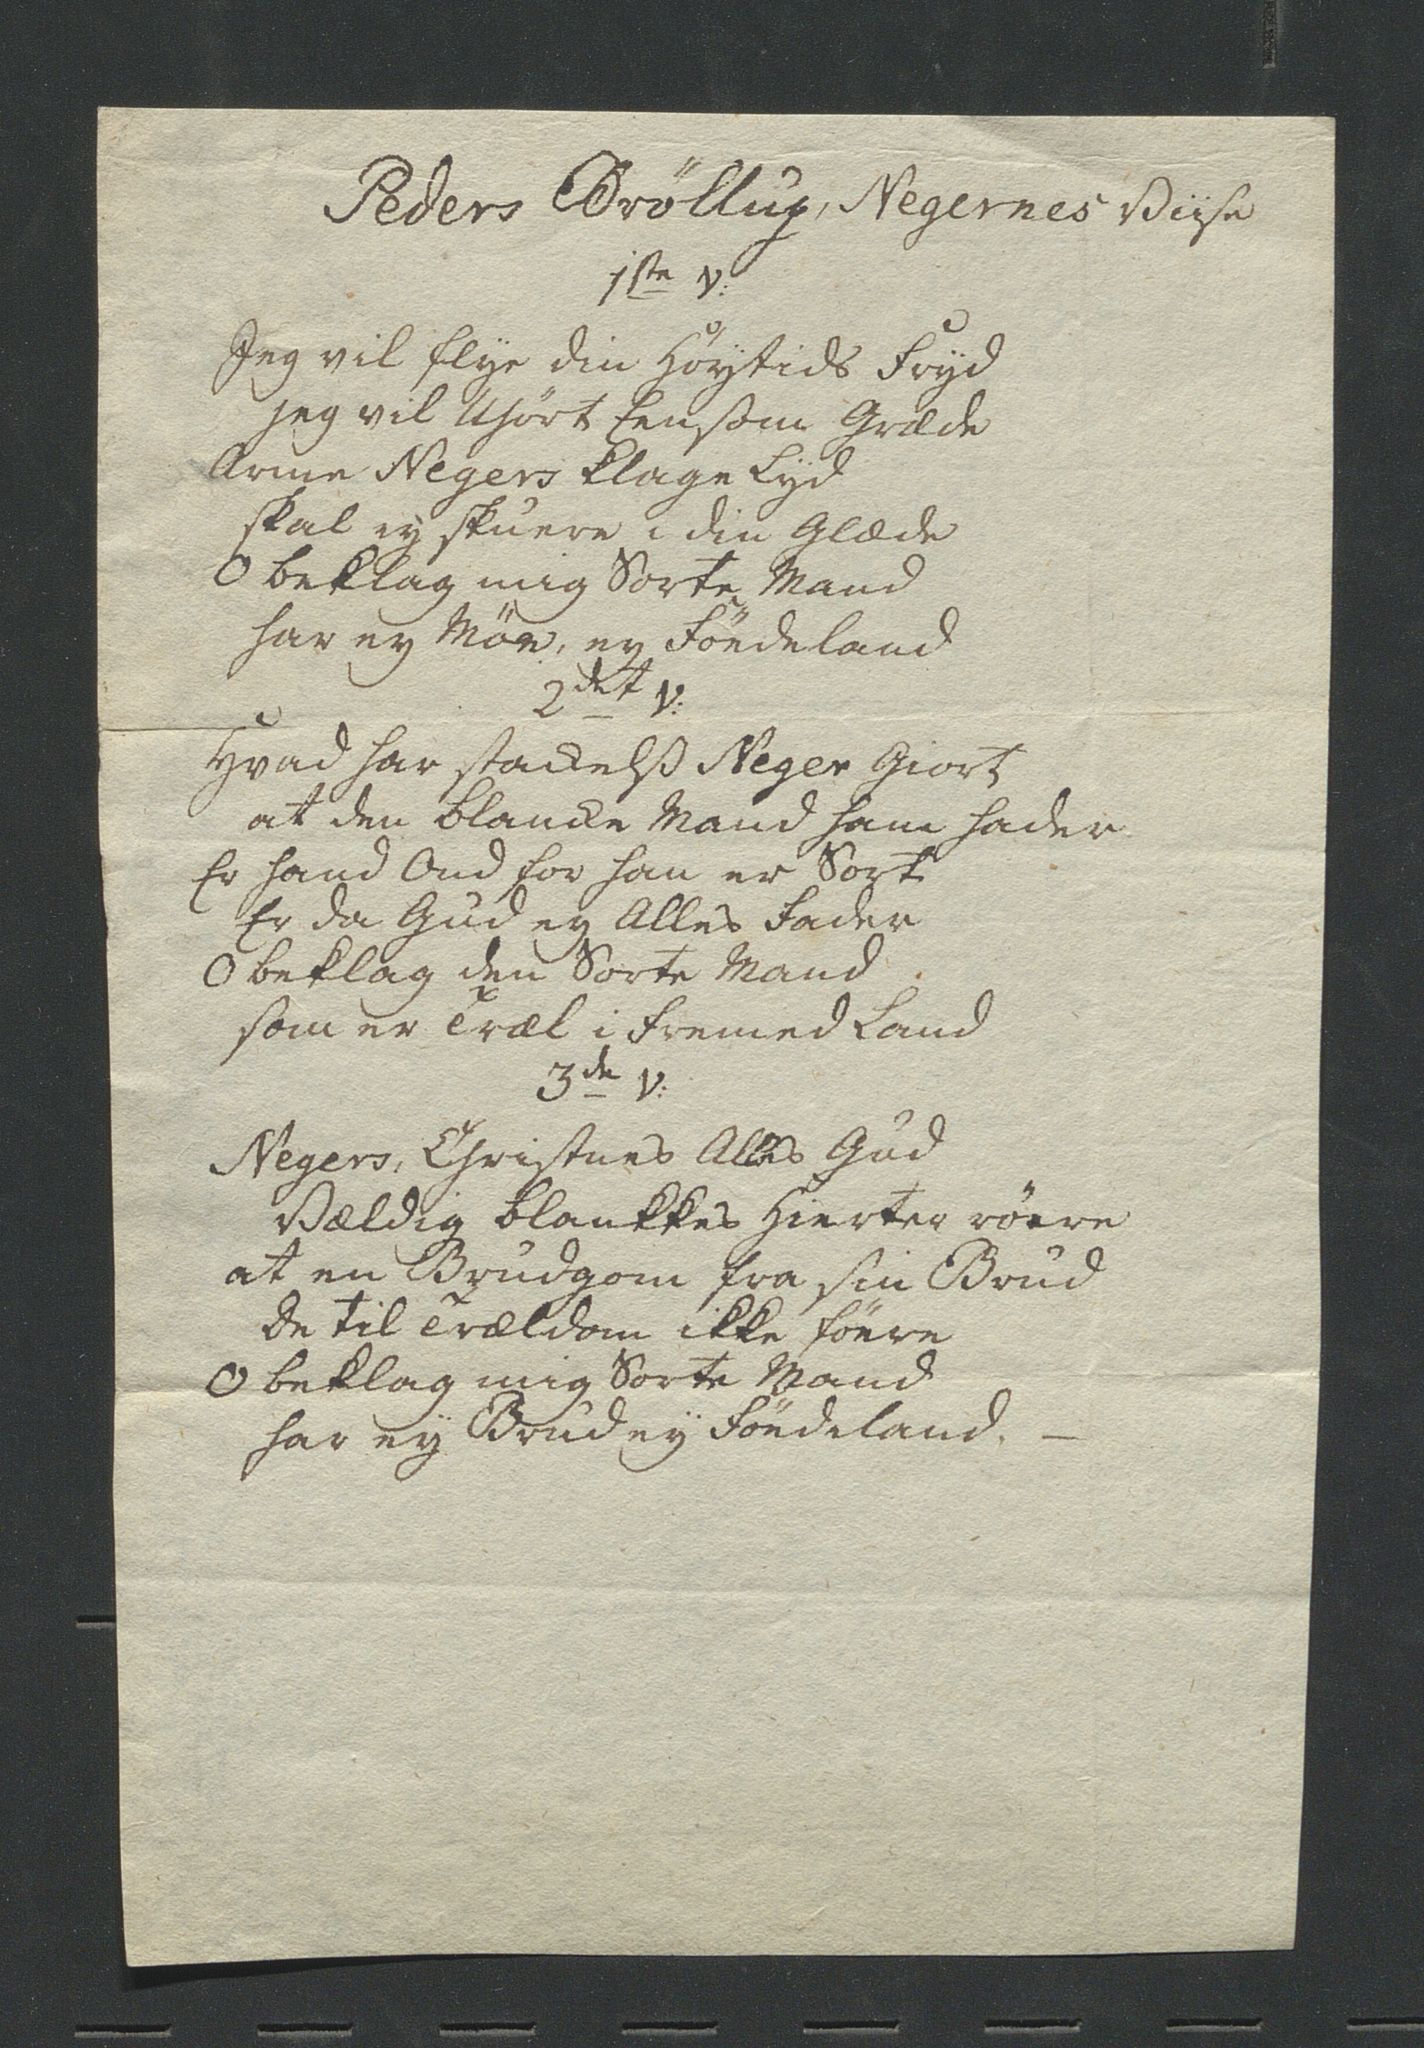 Peders Bröllup, Negernes Viise
1ste v:
Jeg vil flye din Höytids Fryd
jeg vil Uhört Eensom Græde
Arme Negers klage Lyd
skal ey skuere i din Glæde
O beklag mig Sorte Mand
har ey Möe, ey Föedeland
2det v:
Hvad har stackels Neger Giort
at den blancke Mand ham hader
Er hand Ond for han er Sort
Er da Gud ey Alles Fader
O beklag den Sorte Mand
som er Træl i fremed Land
3de v:
Negers, Christnes Alles Gud
Vældig blankkes Hierter röere
at en Brudgom fra sin Brud
de til Trældom ikke föere
O beklag mig Sorte Mand
har ey Brud ey Föedeland. —